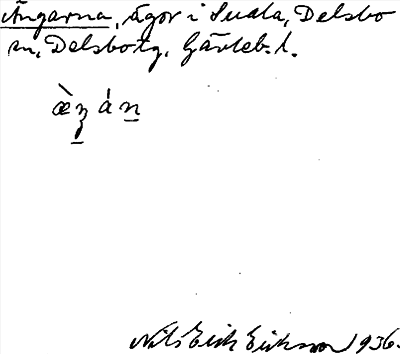 Ängarna, ägor i Svala, Delsbo
sn, Delsbo tg. Gävleb. l.
æ̀ŋ á n
Nils Erik Eriksson 1936.